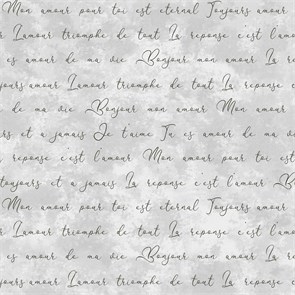 Mon amour pour toi est eternal Toujours amour
Lamour triomphe de tout La reponse c'est l'amour
es amour de ma vie Bonjour mon amour Mon
ours amour Lamour triomphe de tout La reponse
de ma vie Bonjour mon amour Mon amour
rs et a jamais Je t'aime Tu es amour de ma v
reponse c'est l'amour Mon amour pour toi est
toujours et a jamais La reponse c'est l'amour B
Mon amour pour toi est eternal Toujours amour
Lamour triomphe de tout La reponse c'est l'amour
es amour de ma vie Bonjour mon amour Mon
ours amour Lamour triomphe de tout La reponse